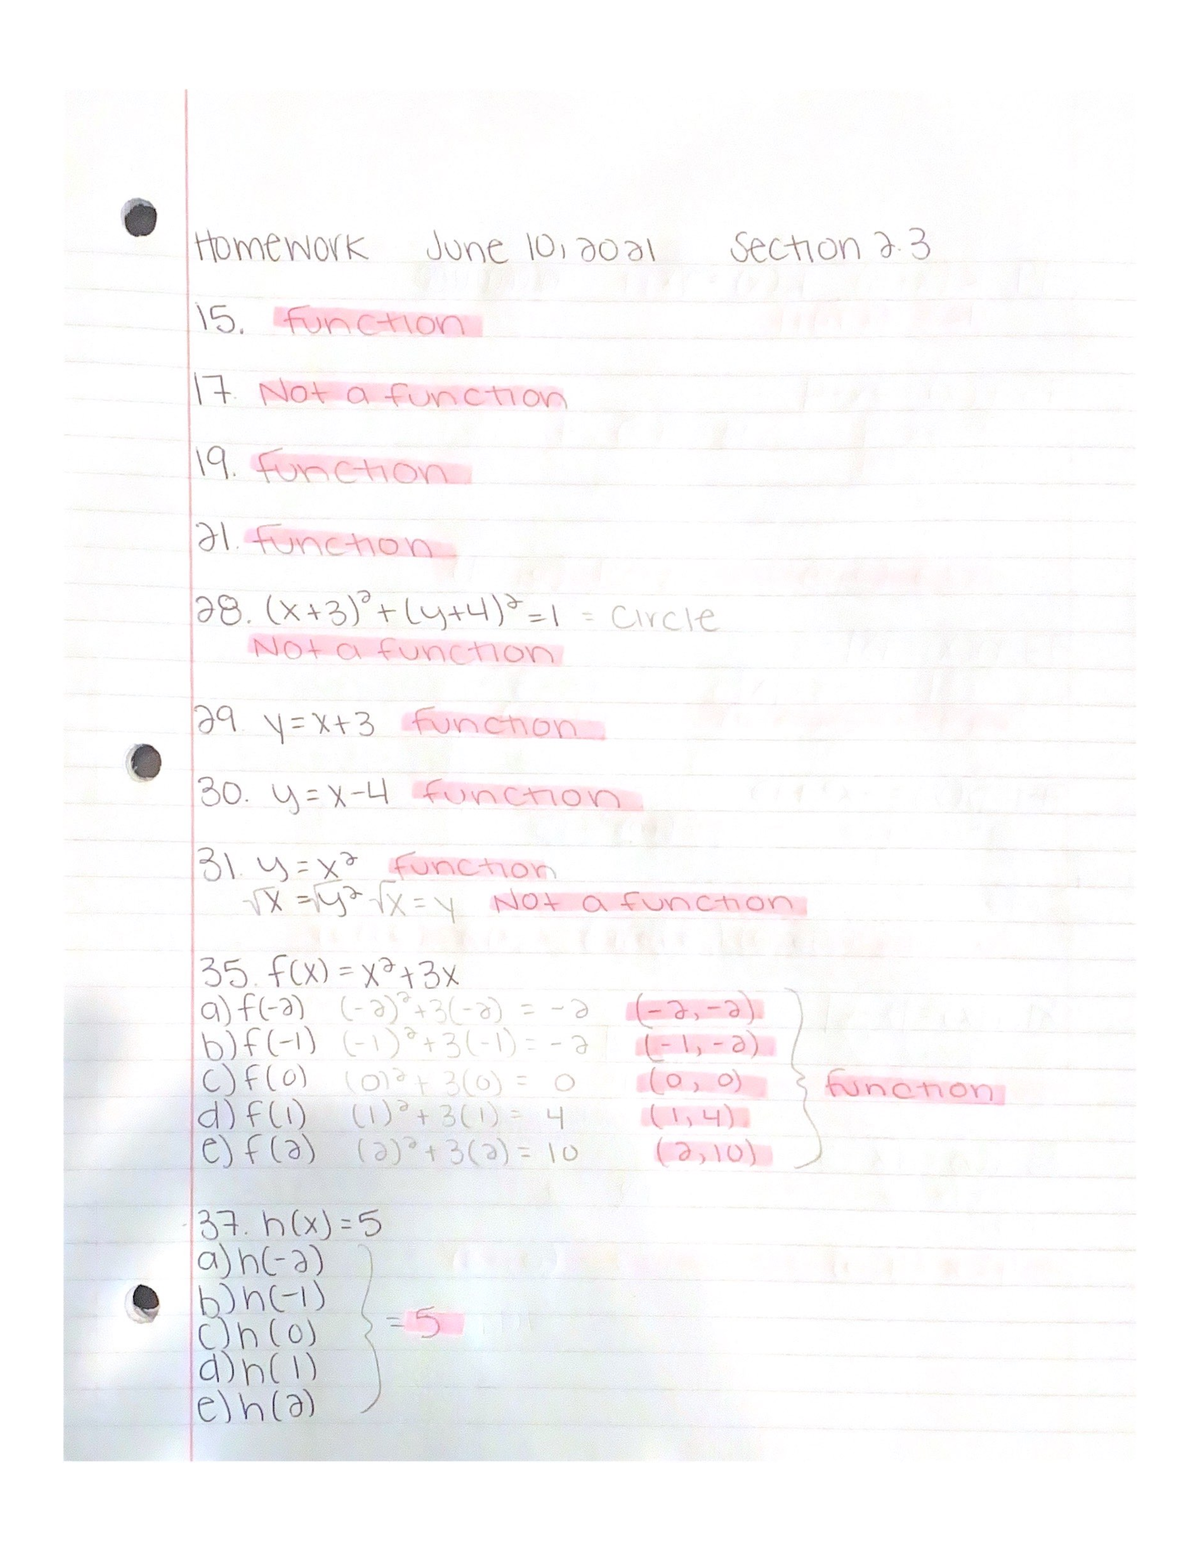 Homework June 10, 2021 Section 2.3
15. function
17. Not a function
19. function
21. function
28. (x+3)²+(y+4)²=1 = Circle
Not a function
29. y=x+3 function
30. y=x-4 function
31. y=x² function
√x =√y² √x=y Not a function
35. f(x)=x²+3x
a) f(-2) (-2)²+3(-2) = -2 (-2,-2)
b) f(-1) (-1)²+3(-1) = -2 (-1,-2)
c) f(0) (0)²+3(0) = 0 (0,0) function
d) f(1) (1)²+3(1) = 4 (1,4)
e) f(2) (2)²+3(2) = 10 (2,10)
37. h(x)=5
a) h(-2)
b) h(-1)
c) h(0) = 5
d) h(1)
e) h(2)